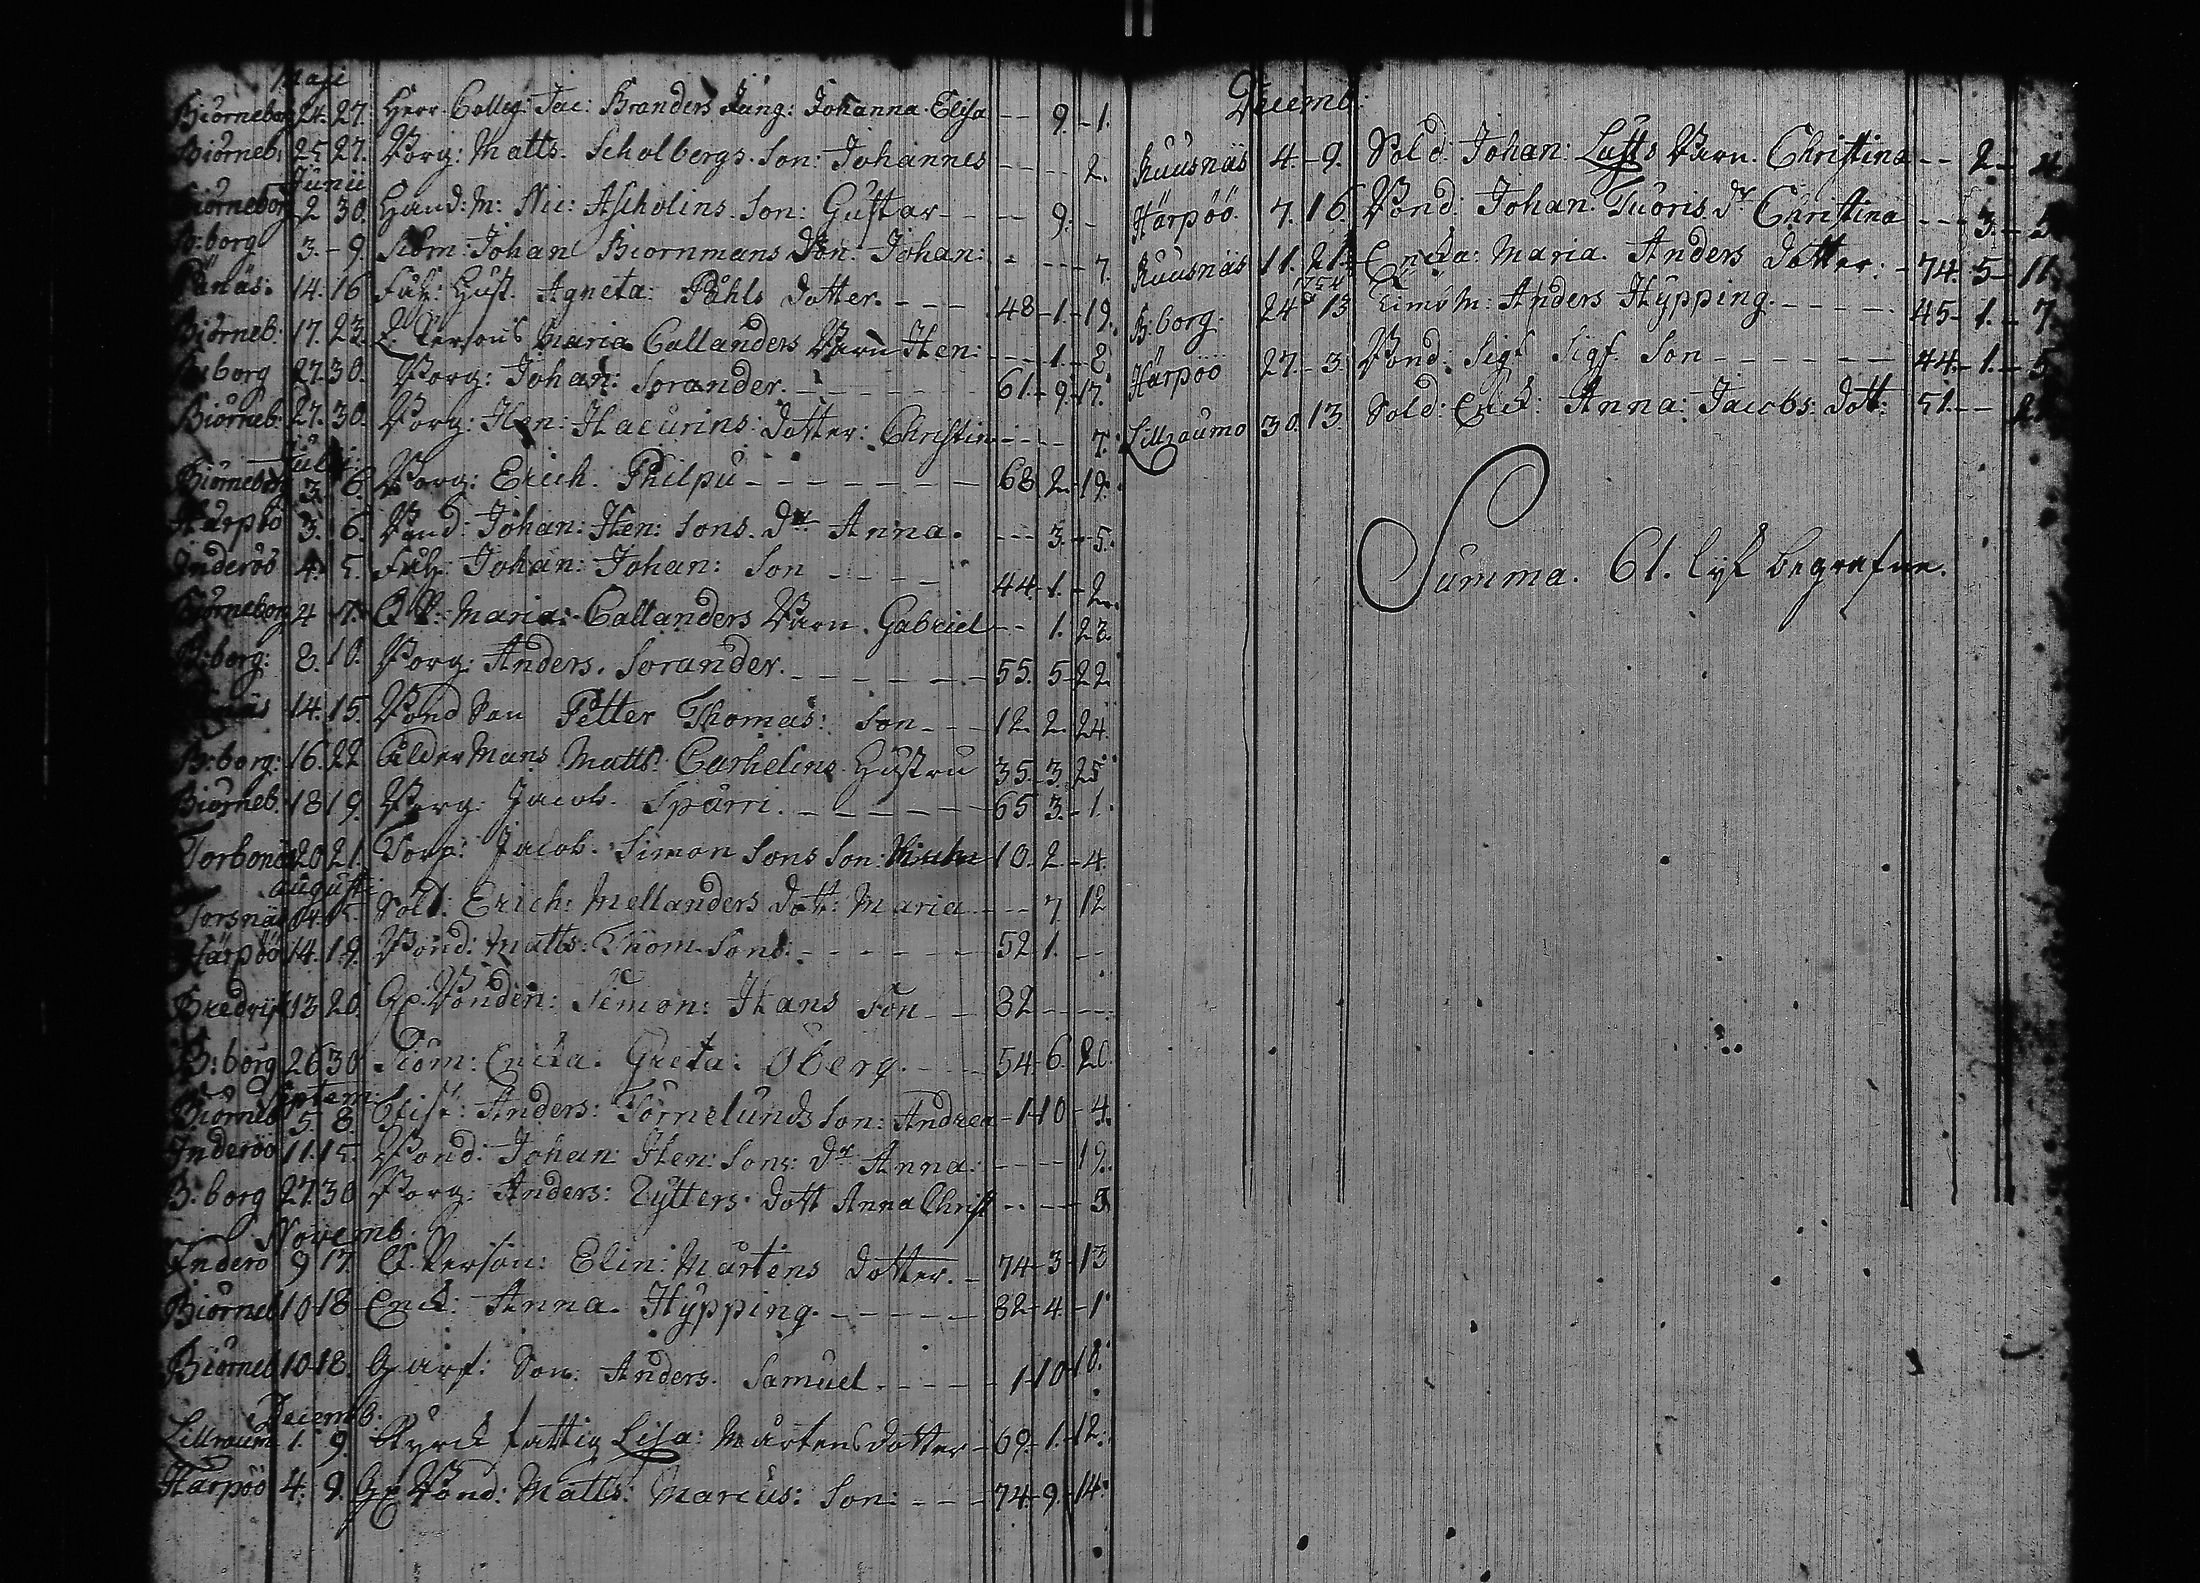 Maji
Biörneborg 24. 27. Herr Colleg: Jac: Branders Jung: Johanna Elisa -- 9. - 1.
Biörneb: 25 27. Borg: Matts. Scholbergs. Son: Johannes ---- 2.
Junii
Biörneborg 2 30. Hand: M: Nic: Ascholins. Son: Gustav --- 9. -
B:borg 3. - 9. Siöm: Johan Biornmans Son: Johan: ---- 7.
14. 16 Hust. Agneta: Påhls dotter. --- 48 - 1 - 19.
Biörneb. 17. 23. Persons Maria Callanders Barn Hen: --- 1 - 8
B:borg 27. 30. Borg: Johan: Sorander. ------ 61. - 9. - 17.
Biörneb: 27. 30. Borg: Hen: dotter: Christin ---- 7.
Julii
Biörneborg 3. 6. Borg: Erich. Philpu ------- 68. 2. - 19.
Härpöö 3. 6. Bond: Johan: Hen: Sons. Dr. Anna. --- 3. - 5.
Inderöö 4. 5. Johan: Johan: Son ---- 44. 1. - 2.
Biörneborg 4 7. Maria: Callanders Barn. Gabriel -- 1. 23.
B:borg: 8. 10. Borg: Anders. Sorander. ------ 55. 5 - 22
14. 15. Bond Son Petter Thomas: Son --- 12. 2. 24.
B:borg: 16. 22 Ålder Mans Matts: Carhelins Hustru 35. 3. 25
Biörneb. 18 19. Borg: Jacob. Spärri. ------ 65 3. - 1.
Torbonäs 20. 21. Torp: Jacob. Simon Sons Son: 10. 2 - 4.
augusti
Torsnäs Sold: Erich: Mellanders Dott: Maria --- 7 12
Härpöö 14. 19. Bond: Matts: Thom. Sons. ------ 52 1. --
Bredvik 13 20. Bondin: Simon: Hans Son -- 82 ----
B:borg 26 30 Siöm: Enckia. Greta: Öberg. --- 54 - 6. 20.
Septem:
Biörneb 5. 8. Anders: Törnelunds Son: Andrea - 1 - 10 - 4.
Inderöö 11. 15. Bond: Johan Hen: Sons: Dr Anna: ---- 19.
B:borg 27. 30 Borg: Anders: Zytters. Dott Anna Christ ----
Novemb:
Inderö 9 17. Person: Elin: Mårtens dotter. - 74 - 3 - 13
Biörneb 10 18 Enck: Anna. Hypping. ------ 82 - 4. - 1.
Biörneb 10 18. Garf: Son: Anders. Samuel. ---- 1 - 10 - 18.
Decemb.
Lillraum 1. 9. Kyrck fattig Lisa: Mårtens dotter - 69. - 1. - 12.
Härpöö 4. 9. Bond: Matts: Marcus: Son: --- 74. - 9. - 14.
Decemb:
Ruusnäs 4. - 9. Sold: Johan: Lusts Barn. Christina -- 2. -
Härpöö. 7. 16. Bond: Johan. Tuoris. Dr Christina --- 3. -
Ruusnäs 11. 21. Enckia: Maria. Anders dotter. - 74. 5 - 11.
B:borg. 24 13 Anders Hypping. ----- 45 - 1. - 7.
Härpöö 27. - 3. Bond: Sigf Sigf. Son ------ 44. - 1. - 5.
Lillraumo 30. 13 Sold: Enck: Anna: Jacobs: Dott: 51. --
Summa. 61. lyk begrafne.